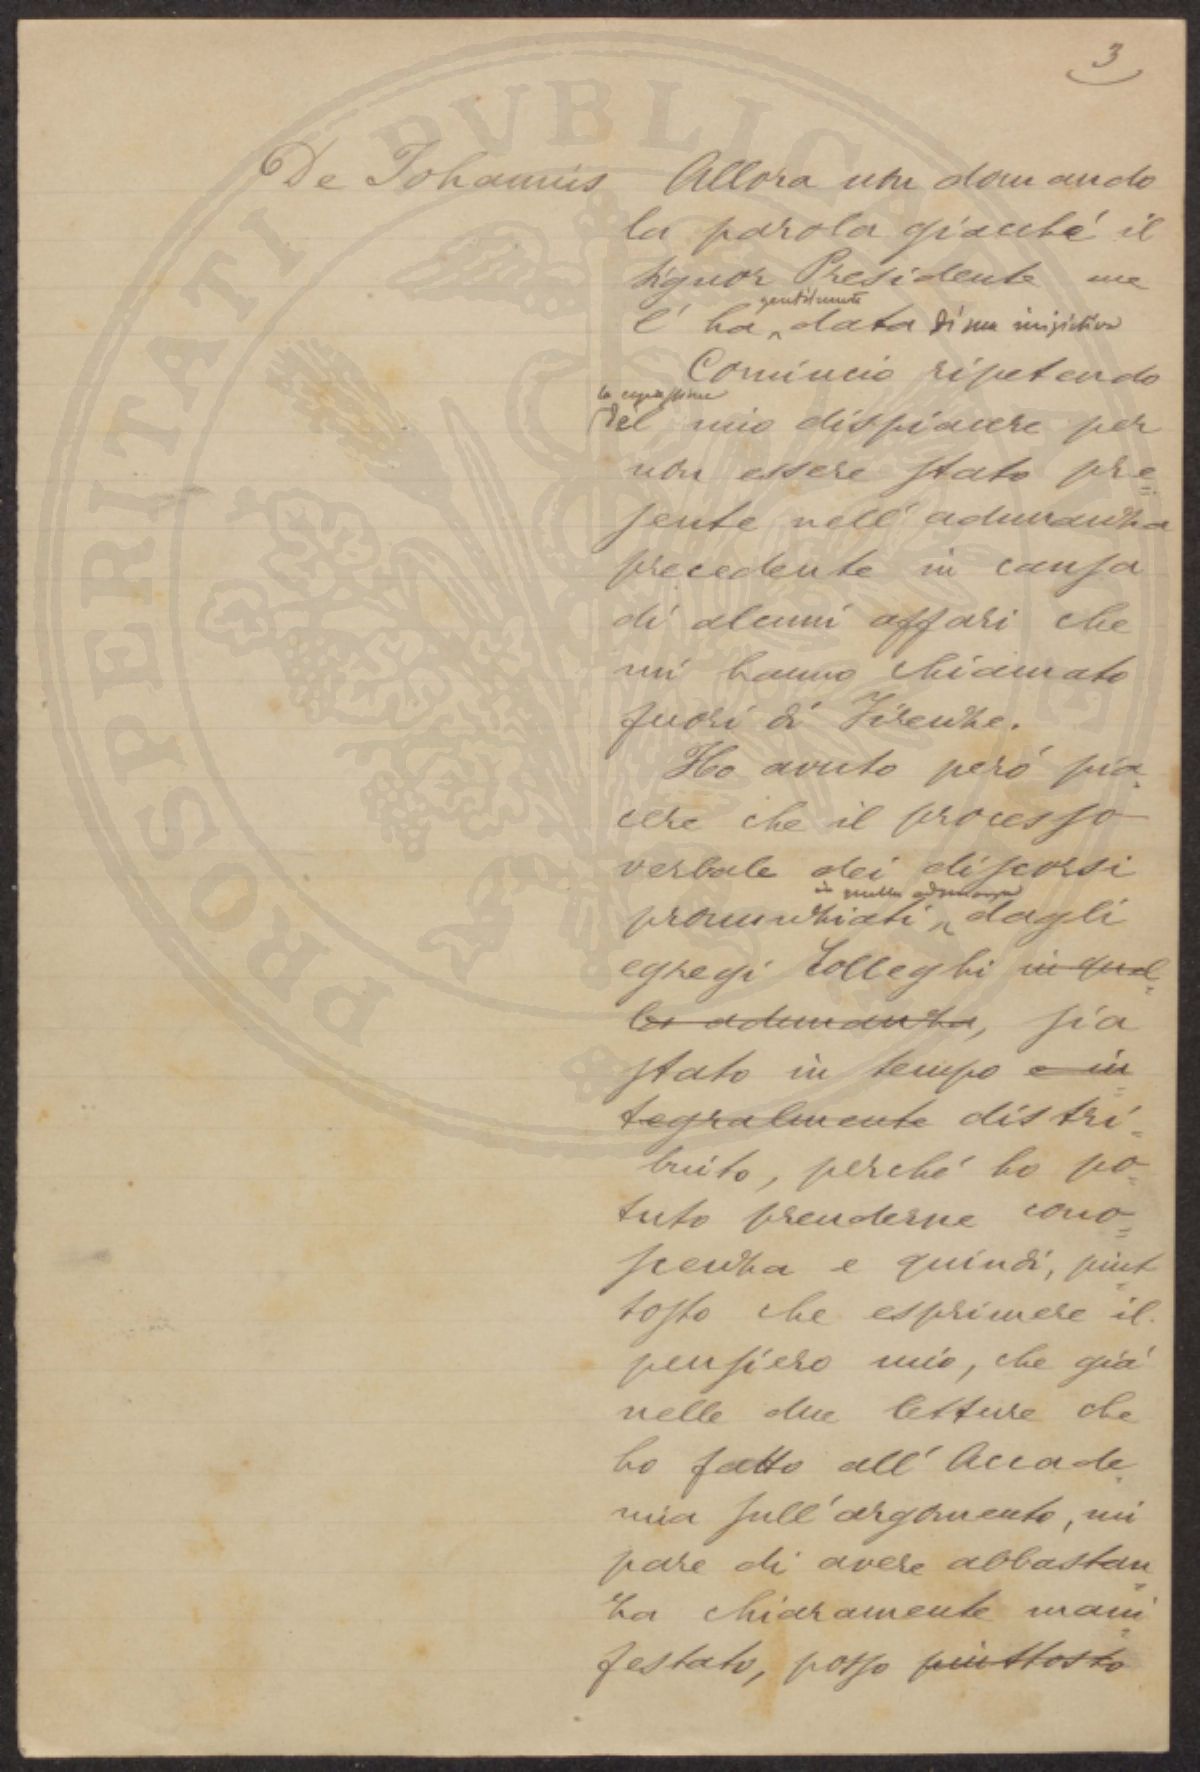 3
De Johannis Allora non domando
la parola giacché il
signor Presidente me
gentilmente
l'ha data di sua iniziativa
Comincio ripetendo
la espressione
del mio dispiacere per
non essere stato pre=
sente nell'adunanza
precedente in causa
di alcuni affari che
mi hanno chiamato
fuori di Firenze.
Ho avuto però pia=
cere che il processo
verbale dei discorsi
in quella adunanza
pronunziati dagli
egregi Colleghi in quel=
la adunanza, sia
stato in tempo e in=
tegralmente distri=
buito, perché ho po=
tuto prenderne cono=
scenza e quindi, piut=
tosto che esprimere il
pensiero mio, che già
nelle due letture che
ho fatto all'Accade=
mia sull'argomento, mi
pare di avere abbastan=
za chiaramente mani=
festato, posso piuttosto
PROSPERITATI PVBLICAE